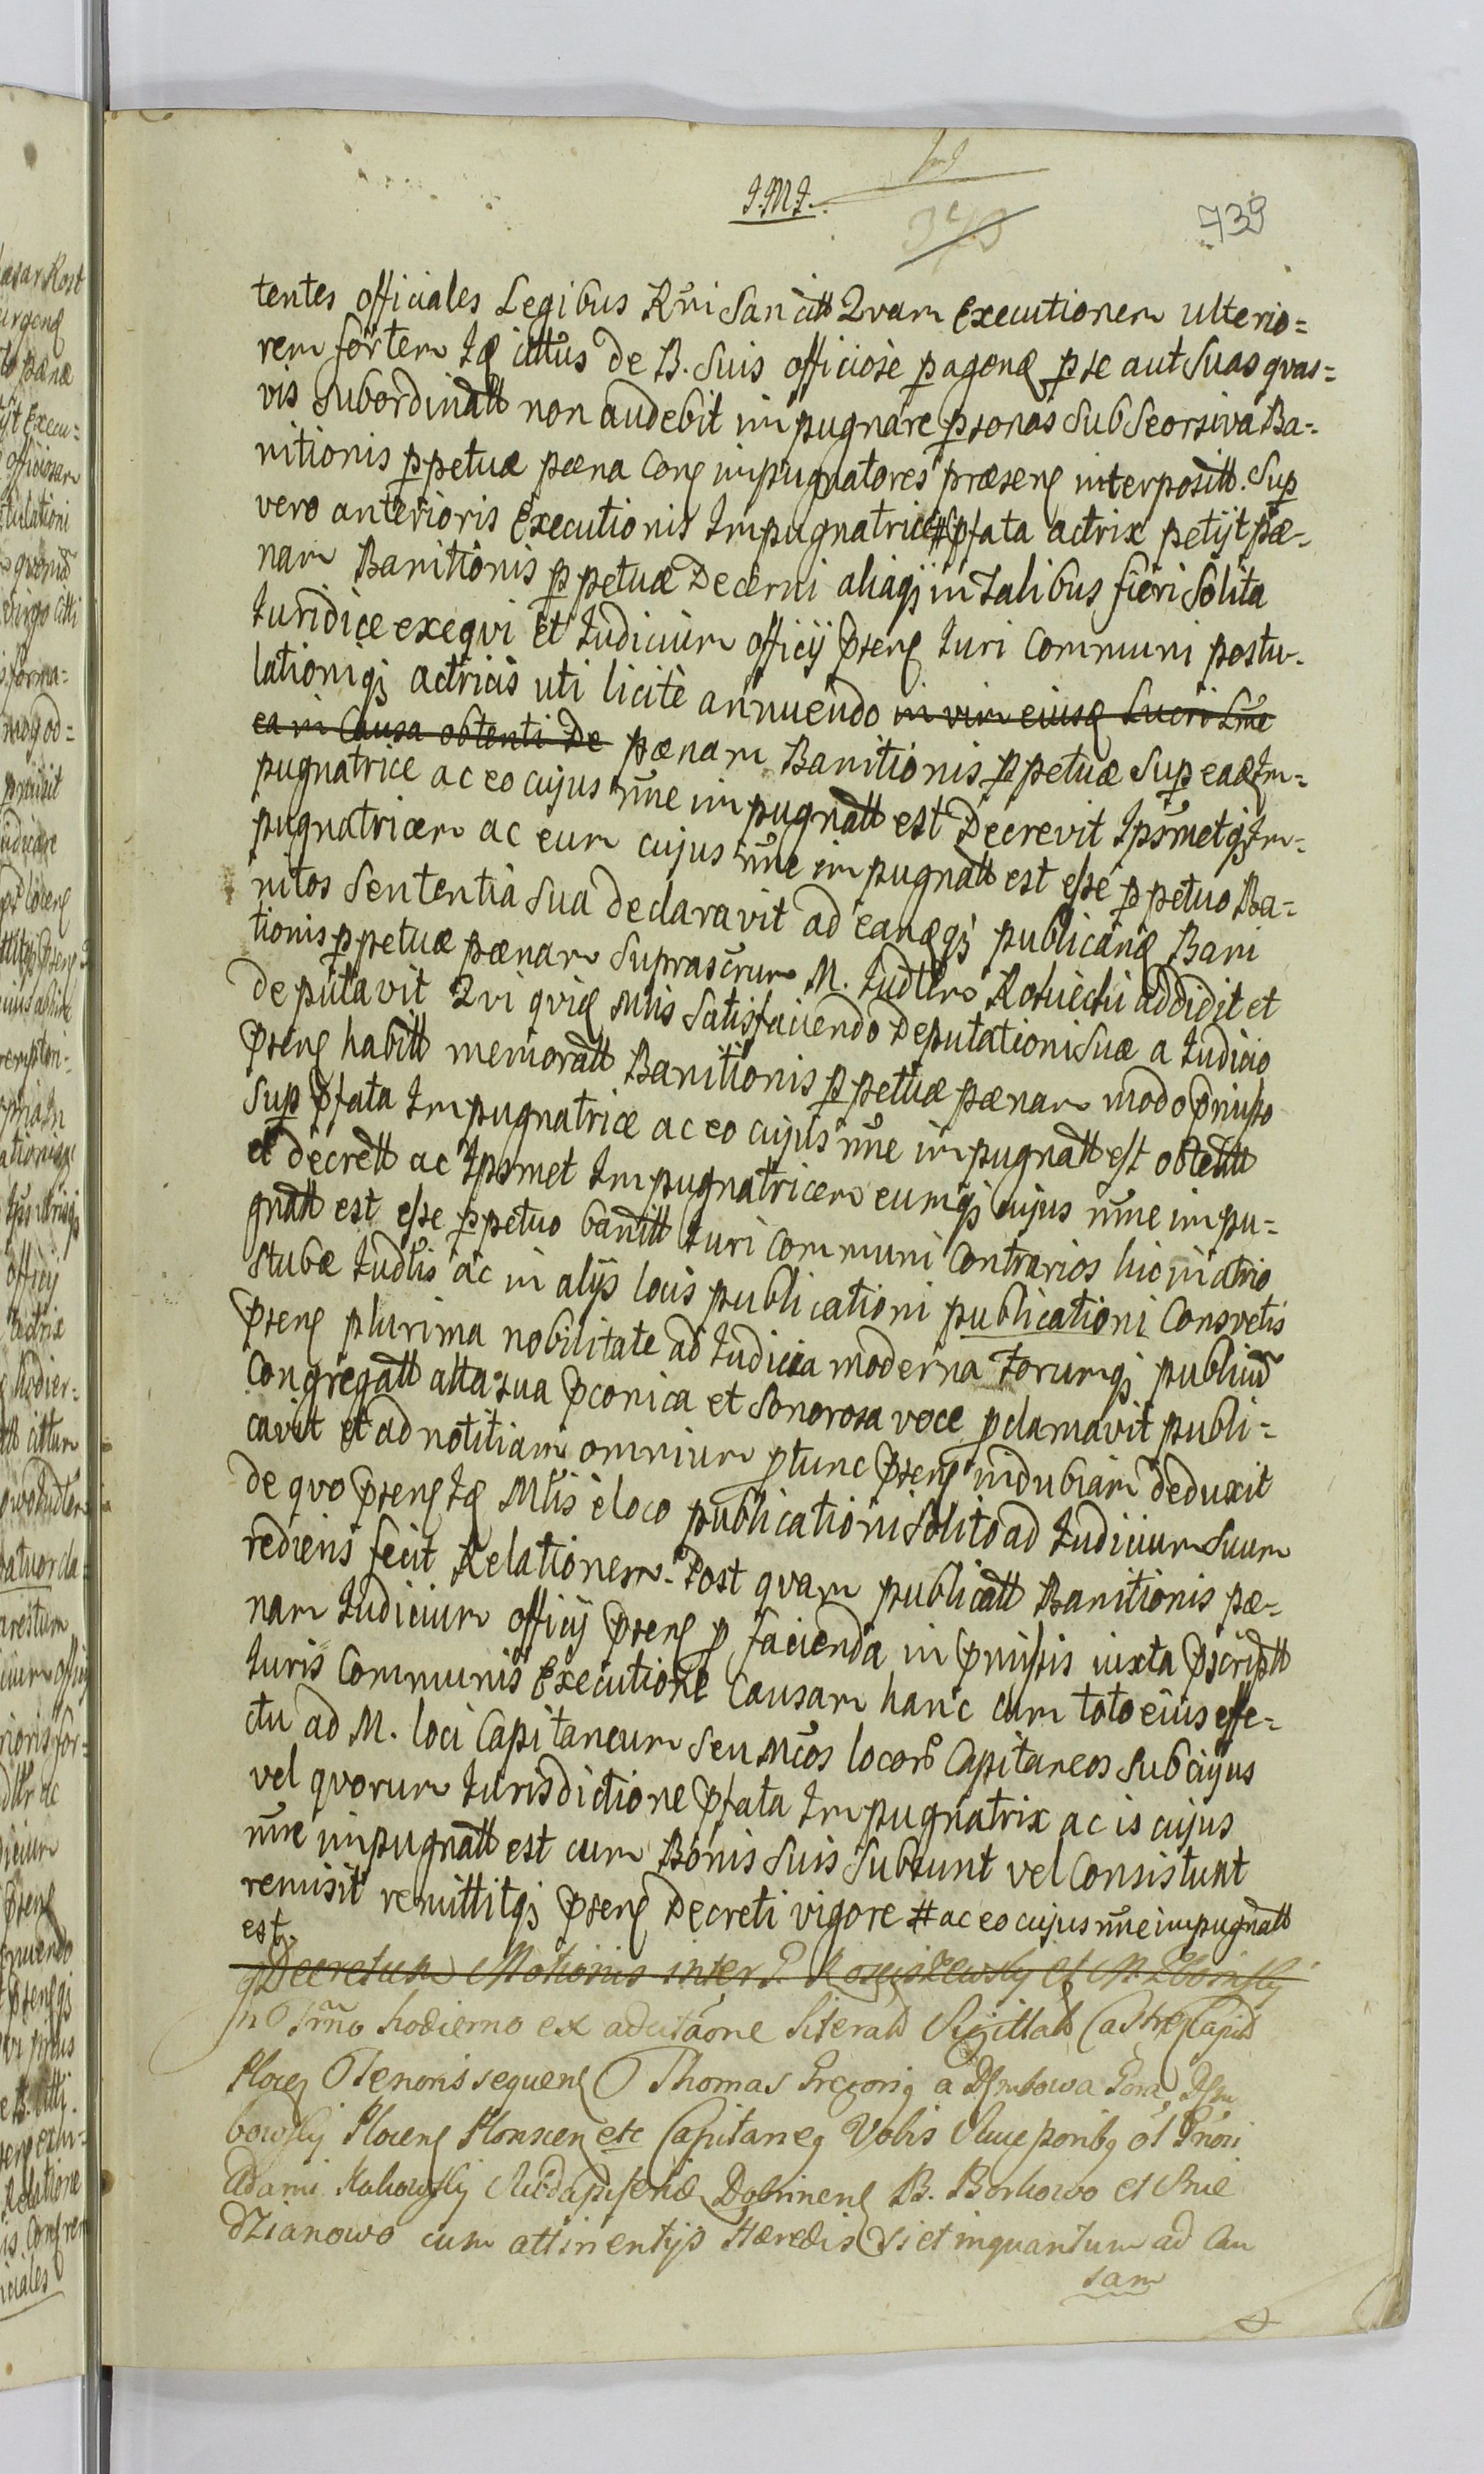 J.M.J.
739
tentes officiales Legibus Rñi Sancitt Qvam Executionem ulterio=
rem fortem Iq cittus de B. Suis officiose pagenq p se aut Suas qvas=
vis Subordinatt non audebit impugnare psonas Sub Seorsiva Ba=
nitionis ppetuæ pæna Conq impugnatores præsenq interpositt. Sup
vero anterioris Executionis Impugnatrice # pfata actrix petijt pæ=
nam Banitionis ppetuæ Decerni aliaqȝ in Talibus fieri Solita
Iuridice exeqvi et Iudicium officij Psenq Iuri Communi postu=
lationiqȝ actricis uti licite annuendo in vim eiusq Lucri Lñe
ea in Causa obtenti De pænam Banitionis ppetuæ Sup eadq Im=
pugnatrice ac eo cujus ñne impugnatt est Decrevit Ipsmetqȝ Im=
pugnatricem ac eum cujus ñne impugnatt est esse ppetuo Ba=
nitos Sententia Sua declaravit ad eanqqȝ publicanq Bani
tionis ppetuæ pænam Suprascrum M. Iudlem Rohiechi addidit et
deputavit Qvi qviq Mlis Satisfaciendo Deputationi Suæ a Iudicio
Psenq habitt memoratt Banitionis ppetuæ pænam modo Pmisso
Sup Pfata Impugnatrice ac eo cujus ñne impugnatt est obtentt
et decrett ac Ipsmet Impugnatricem eumqȝ cujus ñne impu=
gnatt est esse ppetuo banitt Iuri Communi Contrarios hic in atrio
Stubæ Iudlis ac in alijs locis publicationi publicationi Consvetis
Psenq plurima nobilitate ad Iudicia moderna Forumqȝ publicũ
Congregatt alta sua Pconica et Sonorosa voce pclamavit publi=
cavit et ad notitiam omnium ptunc Psenq indubiam deduxit
de qvo Psenq Iq Mlis e loco publicationi Solito ad Iudicium Suum
rediens fecit Relationem. Post qvam publicatt Banitionis pæ=
nam Iudicium officij Psenq p facienda in Pmissis iuxta Pscriptt
Iuris Communis Executione Causam hanc cum toto eius effe=
ctu ad M. loci Capitaneum Seu Mcos locorũ Capitaneos Sub cujus
vel qvorum Iurisdictione Pfata Impugnatrix ac is cujus
ñne impugnatt est cum Bonis Suis Subsunt vel Consistunt
remisit remittitqȝ Psenq Decreti vigore # ac eo cujus ñne impugnatt
est
Decretum Motionis inter G. Kosciszewskij et M. Zboinskij
In Trño hodierno ex adcitaone Literali Sigillatt Castren Capitt
Plocen Tenoris sequenq Thomas Gregoriq a Dembowa Gora Dem
bowskij Plocenq Plonscen etc Capitaneq Vobis
Adami Subdapiferidæ Dobrinenq B. Borkowo et
dzianowo cum attinentijs Hæredis Si et inquantum ad Cau
sam